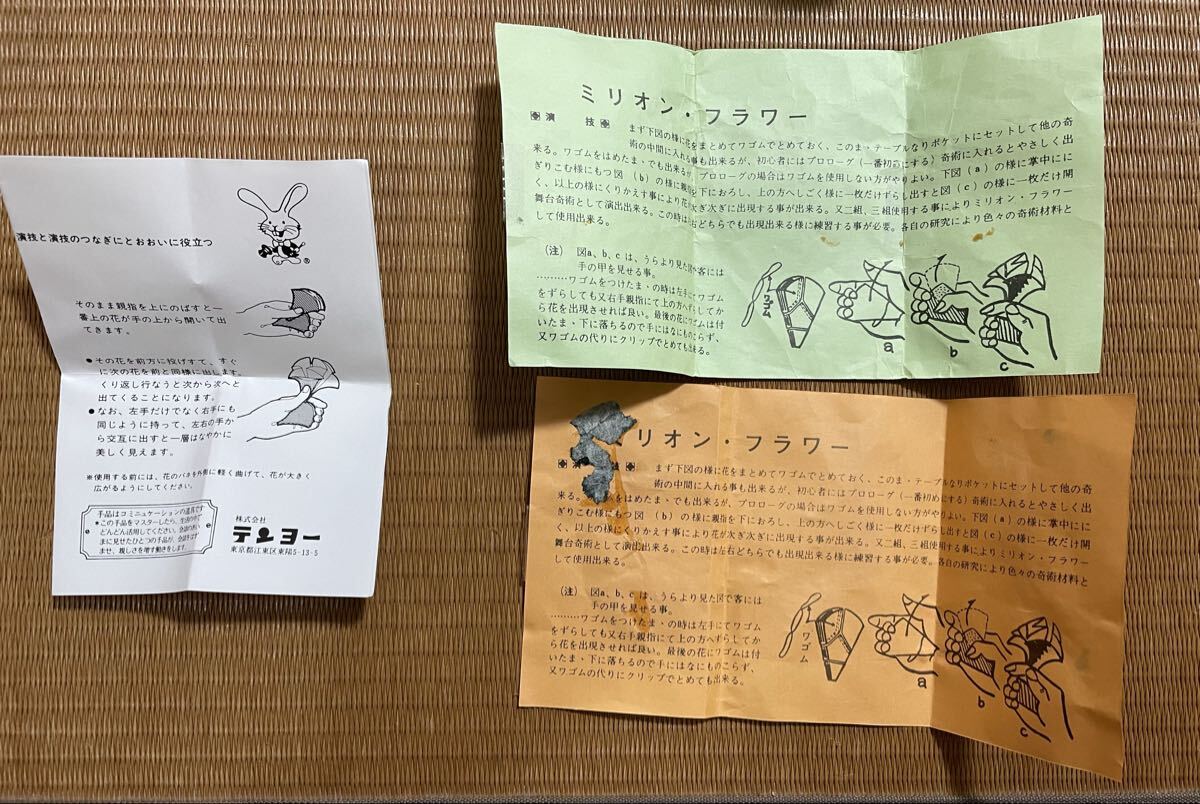 演技と演技のつなぎにとおおいに役立つ
®
そのまま親指を上にのばすと一
番上の花が手の上から開いて出
てきます。
●その花を前方に投げすて、すぐ
に次の花を前と同様に出します。
くり返し行なうと次から次へと
出てくることになります。
●なお、左手だけでなく右手にも
同じように持って、左右の手か
ら交互に出すと一層はなやかに
美しく見えます。
※使用する前には、花のバネを外側に軽く曲げて、花が大きく
広がるようにしてください。
手品はコミニュケーションの道具です
●この手品をマスターしたら、生活の中で
どんどん活用してください。会話のあい
まに見せたひとつの手品が、会話をはず
ませ、親しさを増す働きをします。
株式会社
テンヨー
東京都江東区東陽5-13-5
ミリオン・フラワー
演 技
まず下図の様に花をまとめてワゴムでとめておく、このまゝテーブルなりポケットにセットして他の奇
術の中間に入れる事も出来るが、初心者にはプロローグ（一番初めにする）奇術に入れるとやさしく出
来る。ワゴムをはめたまゝでも出来るが、プロローグの場合はワゴムを使用しない方がやりよい。下図（a）の様に掌中にに
ぎりこむ様にもつ図（b）の様に親指を下におろし、上の方へしごく様に一枚だけずらし出すと図（c）の様に一枚だけ開
く、以上の様にくりかえす事により花が次ぎ次ぎに出現する事が出来る。又二組、三組使用する事によりミリオン・フラワー
舞台奇術として演出出来る。この時は左右どちらでも出現出来る様に練習する事が必要。各自の研究により色々の奇術材料と
して使用出来る。
（注） 図a、b、cは、うらより見た図で客には
手の甲を見せる事。
………ワゴムをつけたまゝの時は左手にてワゴム
をずらしても又右手親指にて上の方へずらしてか
ら花を出現させれば良い。最後の花にワゴムは付
いたまゝ下に落ちるので手にはなにものこらず、
又ワゴムの代りにクリップでとめても出来る。
ワゴム
a
b
c
ミリオン・フラワー
演 技
まず下図の様に花をまとめてワゴムでとめておく、このまゝテーブルなりポケットにセットして他の奇
術の中間に入れる事も出来るが、初心者にはプロローグ（一番初めにする）奇術に入れるとやさしく出
来る。ワゴムをはめたまゝでも出来るが、プロローグの場合はワゴムを使用しない方がやりよい。下図（a）の様に掌中にに
ぎりこむ様にもつ図（b）の様に親指を下におろし、上の方へしごく様に一枚だけずらし出すと図（c）の様に一枚だけ開
く、以上の様にくりかえす事により花が次ぎ次ぎに出現する事が出来る。又二組、三組使用する事によりミリオン・フラワー
舞台奇術として演出出来る。この時は左右どちらでも出現出来る様に練習する事が必要。各自の研究により色々の奇術材料と
して使用出来る。
（注） 図a、b、cは、うらより見た図で客には
手の甲を見せる事。
………ワゴムをつけたまゝの時は左手にてワゴム
をずらしても又右手親指にて上の方へずらしてか
ら花を出現させれば良い。最後の花にワゴムは付
いたまゝ下に落ちるので手にはなにものこらず、
又ワゴムの代りにクリップでとめても出来る。
ワゴム
a
b
c